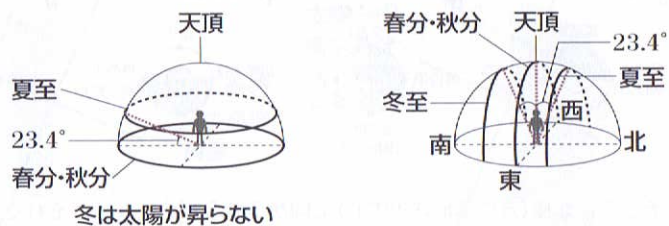 天頂
夏至
23.4°
春分・秋分
冬は太陽が昇らない
天頂
春分・秋分
23.4°
夏至
冬至
西
南
北
東